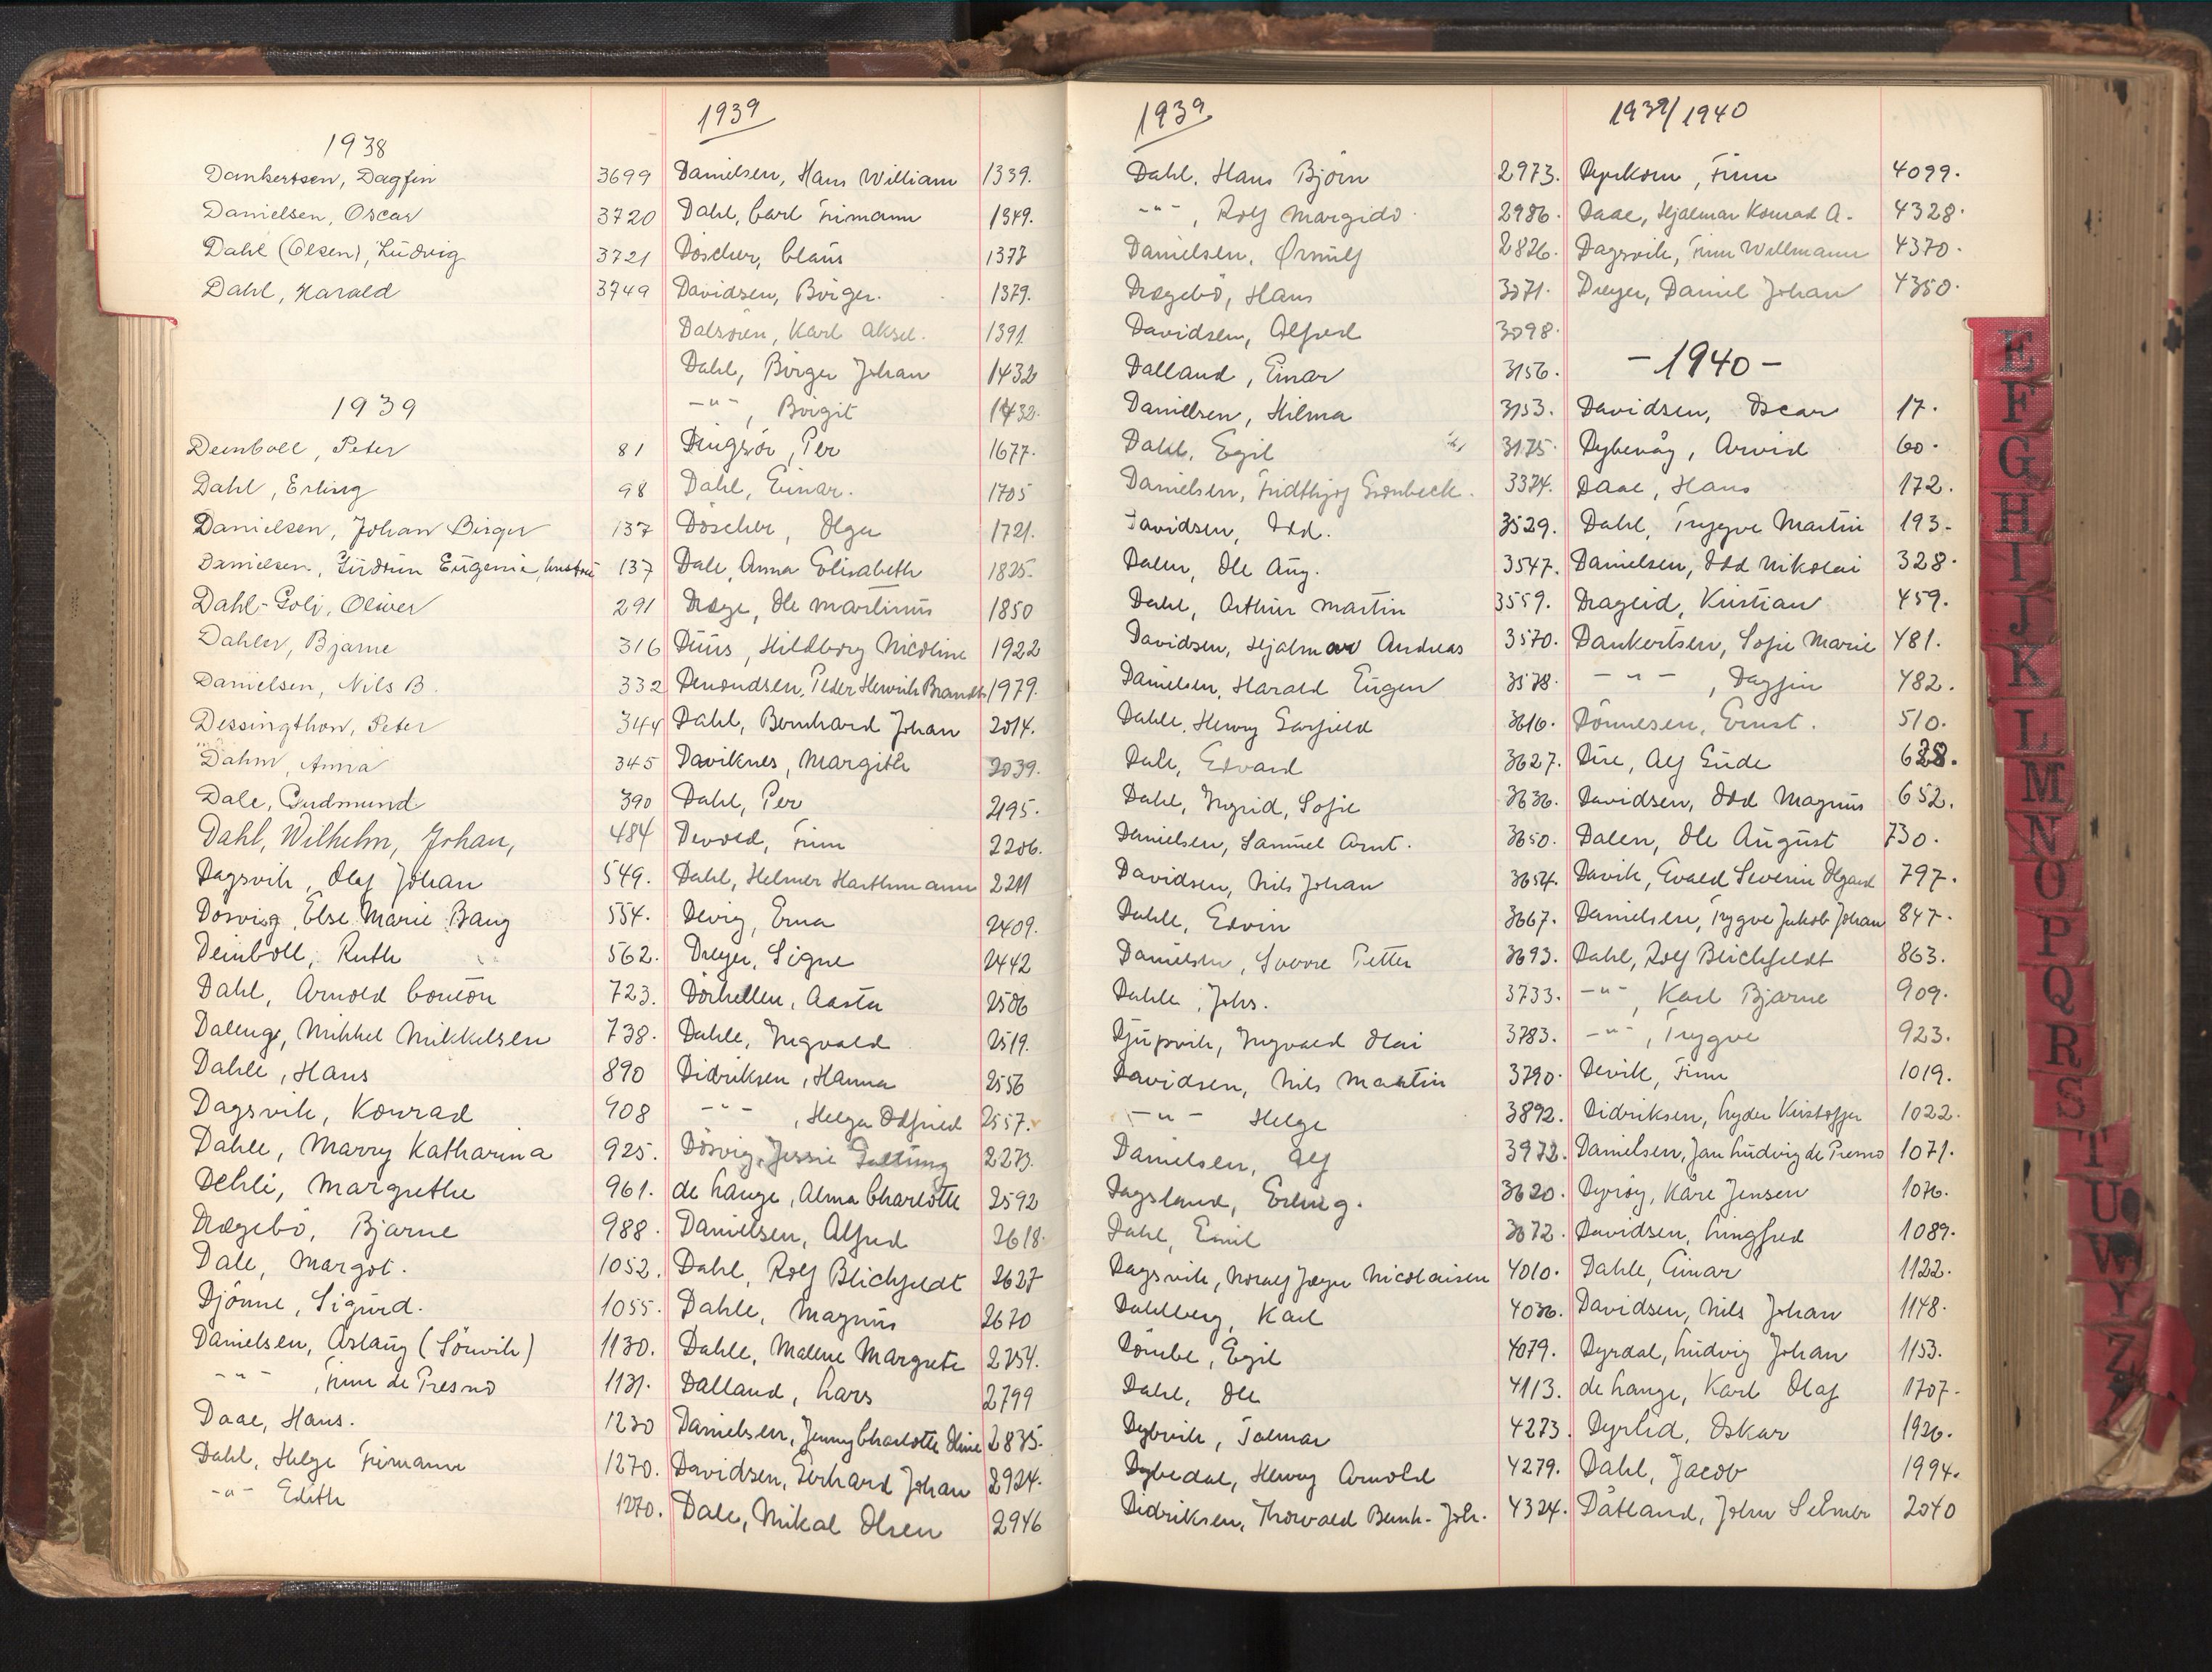 1938
Dankertsen, Dagfin 3699
Danielsen, Oscar 3720
Dahl (Olsen), Ludvig 3721
Dahl, Harald 3749
1939
Deinboll, Peter 81
Dahl, Erling 98
Danielsen, Johan Birger 137
Danielsen, Gudrun Eugenie, hustru 137
Dahl-Goli, Oliver 291
Dahler, Bjarne 316
Danielsen, Nils B. 332
Dessingthon, Peter 344
Dahm, Anna 345
Dale, Gudmund 390
Dahl, Wilhelm, Johan, 484
Dagsvik, Olaf Johan 549.
Dosvig, Else Marie Bang 554.
Deinboll, Ruth 562.
Dahl, Arnold Couton 723.
Daleng, Mikkel Mikkelsen 738.
Dahle, Hans 890
Dagsvik, Konrad 908
Dahle, Marry Katharina 925.
Dehli, Margrethe 961.
Drægebö, Bjarne 988.
Dale, Margot. 1052.
Djönne, Sigurd. 1055.
Danielsen, Aslaug (Sörvik) 1130.
-"- , Finn de Presno 1131.
Daae, Hans. 1230
Dahl, Helge Firmann 1270.
-"- Edith 1270.
1939
Danielsen, Hans William 1339.
Dahl, Carl Firmann 1349.
Döscher, Claus 1377
Davidsen, Birger. 1379.
Dalsören, Karl Aksel. 1391
Dahl, Birger Johan 1432
-"-, Birgit 1432.
Dingsör, Per 1677.
Dahl, Einar. 1705
Döscher, Olga 1721.
Dale, Anna Elisabeth 1825.
Drage, Ole Martinus 1850
Duus, Hildborg Nicoline 1922
Demondsen, Peder Henrich Brandt 1979.
Dahl, Bernhard Johan 2014.
Daviknes, Margith 2039.
Dahl, Per 2195.
Devold, Finn 2206.
Dahl, Helmer Harthmann 2211
Devig, Erna 2409.
Dreyer, Signe 2442
Dörhellen, Aasta 2506
Dahle, Ingvald 2519.
Didriksen, Hanna 2556
-"-, Helga Odfried 2557.
Dösvig, Jessie Galtung 2273.
de Lange, Alma Charlotte 2592
Danielsen, Alfred 2618.
Dahl, Rolf Blichfeldt 2627
Dahle, Magnus 2670
Dahle, Malene Margrete 2754.
Dalland, Lars 2799
Danielsen, Jenny Charlotte Oline 2835.
Davidsen, Gerhard Johan 2924.
Dale, Mikal Olsen 2946
1939
Dahl, Hans Björn 2973.
-"-, Rolf Margido. 2986.
Danielsen, Ørnulf 2826.
Drægebö, Hans 3071.
Davidsen, Alfred 3098.
Dalland, Einar 3156.
Danielsen, Hilma 3153.
Dahl, Egil 3175.
Danielsen, Fridthjof Grønbeck. 3374.
Davidsen, Odd. 3529.
Dalen, Ole Aug. 3547.
Dahl, Arthur Martin 3559.
Davidsen, Hjalmar Andreas 3570.
Danielsen, Harald Eugen 3578.
Dahle, Henry Garfield 3616.
Dale, Edvard 3627.
Dahl, Ingrid, Sofie 3636.
Danielsen, Samuel Arnt. 3650.
Davidsen, Nils Johan 3654.
Dahle, Edvin 3667.
Danielsen, Sverre Petter 3693.
Dahle, Johs. 3733.
Djupvik, Ingvald Olai 3783.
Davidsen, Nils Martin 3790.
-"- Helge 3892.
Danielsen, Alf 3972.
Dagsland, Erling. 3620.
Dahl, Emil 3672.
Dagsvik, Noralf Jæger Nicolaisen 4010.
Dahlberg, Karl 4036.
Dömbe, Egil 4079.
Dahl, Ole 4113.
Dybvik, Tolmar 4273.
Dybedal, Henry Arnold 4279.
Didriksen, Thorvald Bernh. Joh. 4324.
1939/1940
Dyrkorn, Finn 4099.
Daae, Hjalmar Konrad A. 4328.
Dagsvik, Finn Willmann 4370.
Dreyer, Daniel Johan 4350.
- 1940 -
Davidsen, Oscar 17.
Dybevåg, Arvid 60.
Daae, Hans 172.
Dahl, Trygve Martin 193.
Danielsen, Odd Nikolai 328.
Draglid, Kristian 459.
Dankertsen, Sofie Marie 481.
-"-, Dagfin 482.
Dönnesen, Ernst. 510.
Due, Alf Gude 628.
Davidsen, Odd Magnus 652.
Dalen, Ole August 730.
Davik, Evald Severin Olgard 797.
Danielsen, Trygve Jakob Johan 847.
Dahl, Rolf Blichfeldt 863.
-"-, Karl Bjarne 909.
-"-, Trygve 923.
Devik, Finn 1019.
Didriksen, Lyder Kristoffer 1022.
Danielsen, Jan Ludvig de Presno 1071.
Dyröy, Kåre Jensen 1076.
Davidsen, Lingfred 1089.
Dahle, Einar 1122.
Davidsen, Nils Johan 1148.
Dyrdal, Ludvig Johan 1153.
de Lange, Karl Olaf 1707.
Dyrlid, Oskar 1926.
Dahl, Jacob 1994.
Dåtland, John Selmer 2040
E
F
G
H
I
J
K
L
M
N
O
P
Q
R
S
T
U
W
Y
Z